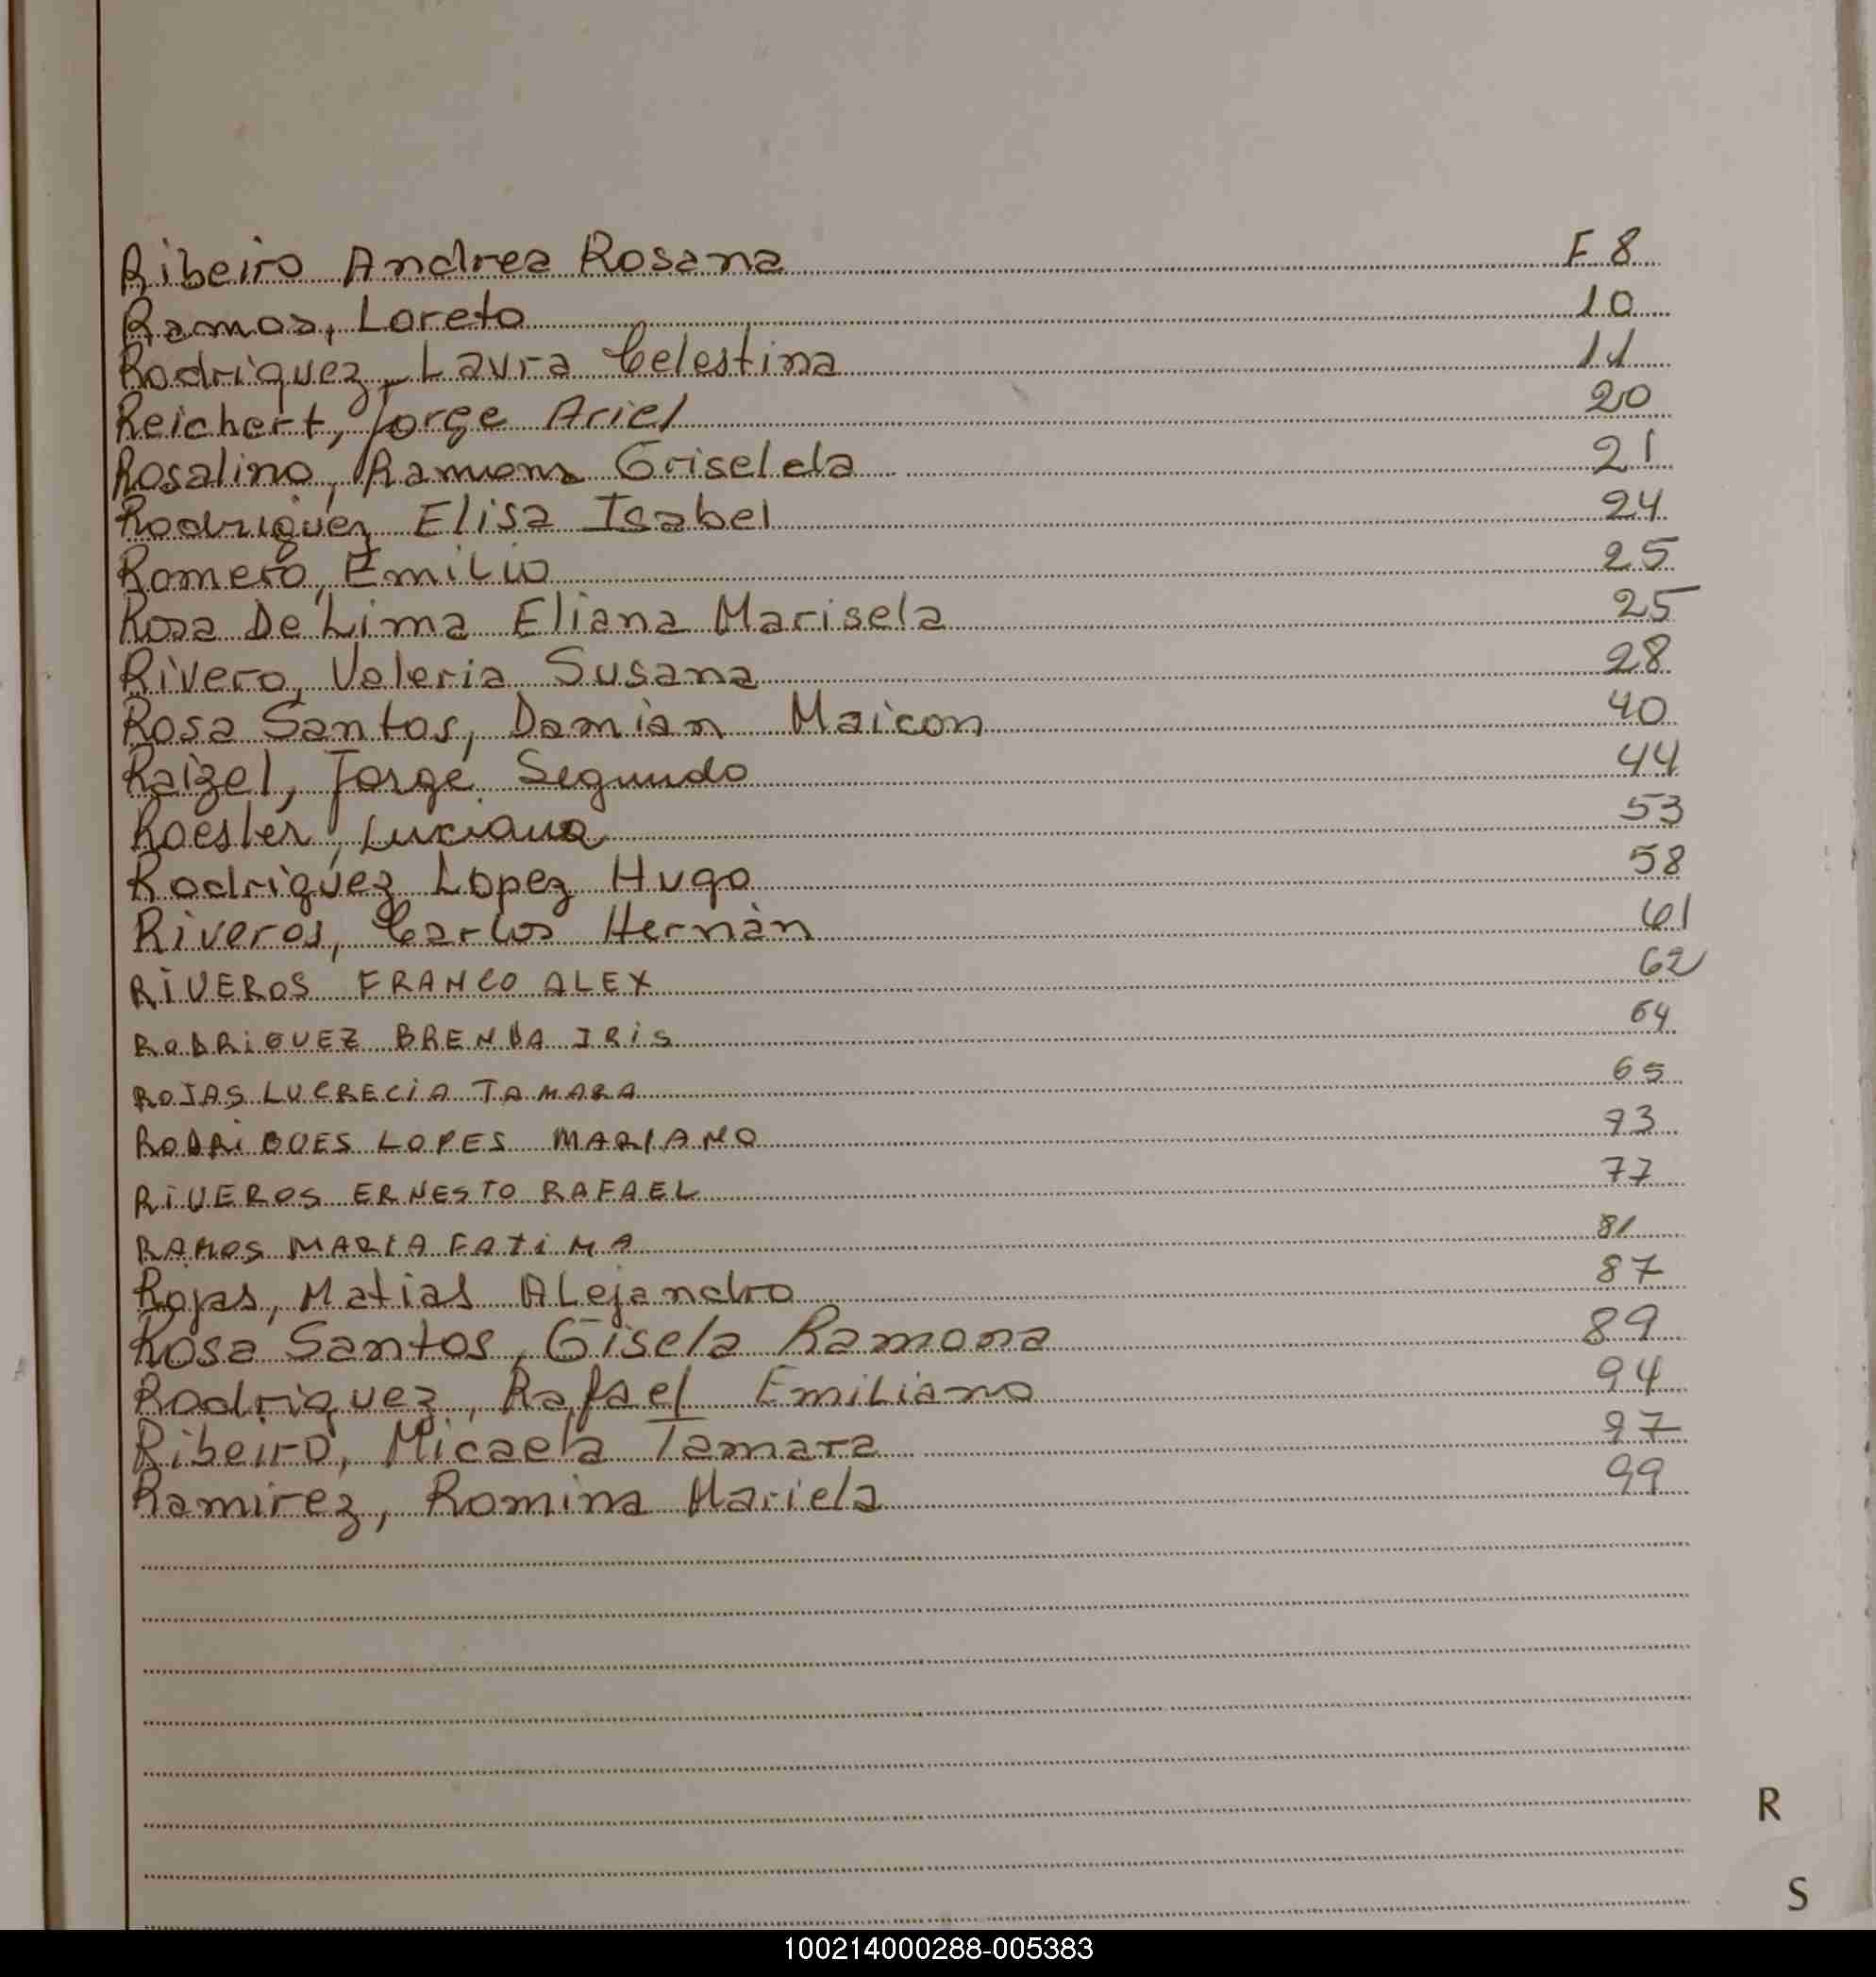 Ribeiro Andrea Rosana F 8
Ramos, Loreto 10
Rodriguez, Laura Celestina 11
Reichert, Jorge Ariel 20
Rosalino, Ramona Griselda 21
Rodriguez Elisa Isabel 24
Romero, Emilio 25
Rosa De Lima Eliana Marisela 25
Rivero, Valeria Susana 28
Rosa Santos, Damian Maicon 40
Raizel, Jorge Segundo 44
Roesler, Luciana 53
Rodriguez Lopez Hugo 58
Riveros, Carlos Hernàn 61
RIVEROS FRANCO ALEX 62
RODRIGUEZ BRENDA IRIS 64
ROJAS LUCRECIA TAMARA 65
RODRIGUES LOPES MARIANO 73
RIVEROS ERNESTO RAFAEL 77
RAMOS MARIA FATIMA 81
Rojas, Matias Alejandro 87
Rosa Santos, Gisela Ramona 89
Rodriguez, Rafael Emiliano 94
Ribeiro, Micaela Tamara 97
Ramirez, Romina Mariela 99
R
S
100214000288-005383